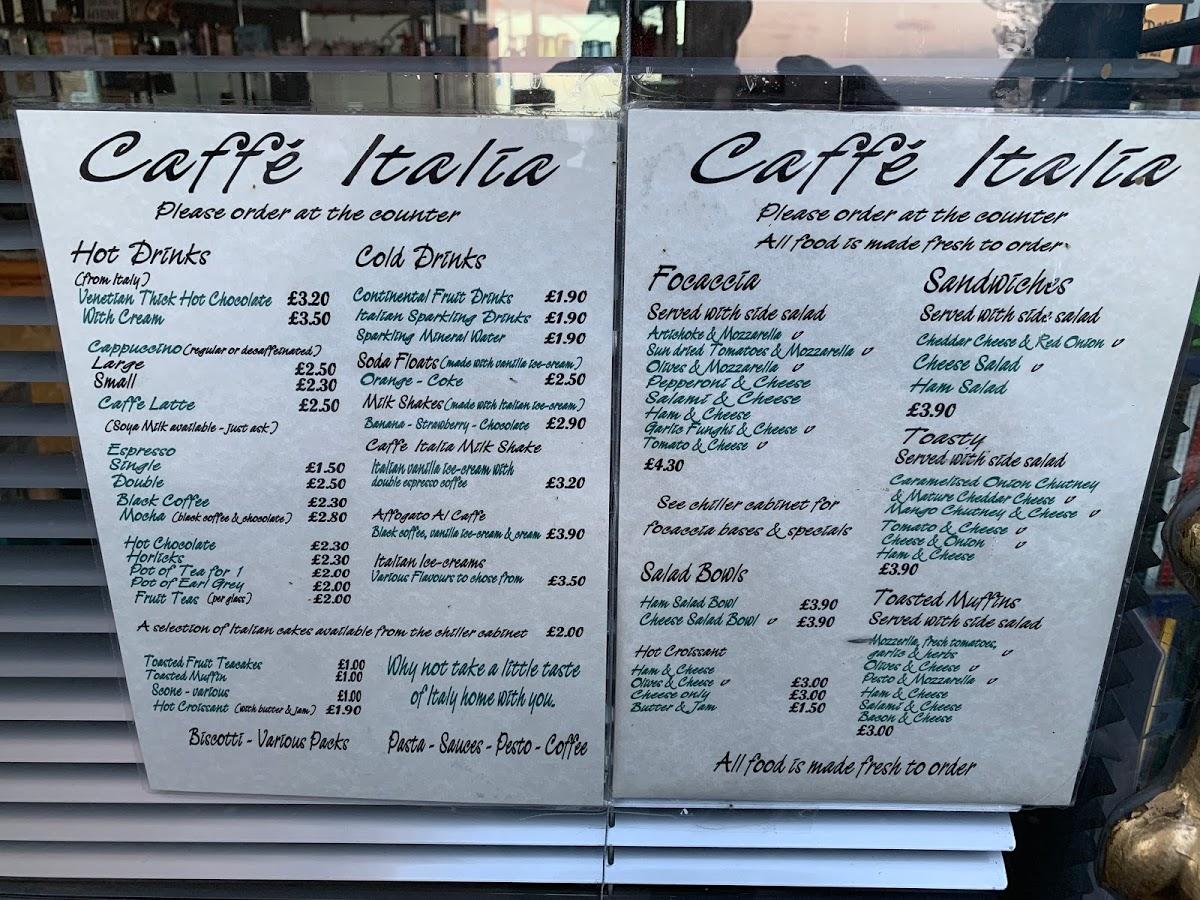 Caffé Italia
Please order at the counter
Hot Drinks
(from Italy)
Venetian Thick Hot Chocolate £3.20
With Cream £3.50
Cappuccino (regular or decaffeinated)
Large £2.50
Small £2.30
Caffe Latte £2.50
(Soya Milk available - just ask)
Espresso
Single £1.50
Double £2.50
Black Coffee £2.30
Mocha (black coffee & chocolate) £2.80
Hot Chocolate £2.30
Horlicks £2.30
Pot of Tea for 1 £2.00
Pot of Earl Grey £2.00
Fruit Teas (per glass) £2.00
Cold Drinks
Continental Fruit Drinks £1.90
Italian Sparkling Drinks £1.90
Sparkling Mineral Water £1.90
Soda Floats (made with vanilla ice-cream)
Orange - Coke £2.50
Milk Shakes (made with Italian ice-cream)
Banana - Strawberry - Chocolate £2.90
Caffe Italia Milk Shake
Italian vanilla ice-cream with
double espresso coffee £3.20
Affogato Al Caffe
Black coffee, vanilla ice-cream & cream £3.90
Italian Ice-creams
Various Flavours to chose from £3.50
A selection of Italian cakes available from the chiller cabinet £2.00
Toasted Fruit Teacakes £1.00
Toasted Muffin £1.00
Scone - various £1.00
Hot Croissant (with butter & jam) £1.90
Why not take a little taste
of Italy home with you.
Biscotti - Various Packs Pasta - Sauces - Pesto - Coffee
Caffé Italia
Please order at the counter
All food is made fresh to order
Focaccia
Served with side salad
Artichoke & Mozzarella v
Sun dried Tomatoes & Mozzarella v
Olives & Mozzarella v
Pepperoni & Cheese
Salami & Cheese
Ham & Cheese
Garlic Funghi & Cheese v
Tomato & Cheese v
£4.30
See chiller cabinet for
focaccia bases & specials
Salad Bowls
Ham Salad Bowl £3.90
Cheese Salad Bowl v £3.90
Hot Croissant
Ham & Cheese
Olives & Cheese v £3.00
Cheese only £3.00
Butter & Jam £1.50
Sandwiches
Served with side salad
Cheddar Cheese & Red Onion v
Cheese Salad v
Ham Salad
£3.90
Toasty
Served with side salad
Caramelised Onion Chutney
& Mature Cheddar Cheese v
Mango Chutney & Cheese v
Tomato & Cheese v
Cheese & Onion v
Ham & Cheese
£3.90
Toasted Muffins
Served with side salad
Mozzerlla, fresh tomatoes,
garlic & herbs v
Olives & Cheese v
Pesto & Mozzarella v
Ham & Cheese
Salami & Cheese
Bacon & Cheese
£3.00
All food is made fresh to order